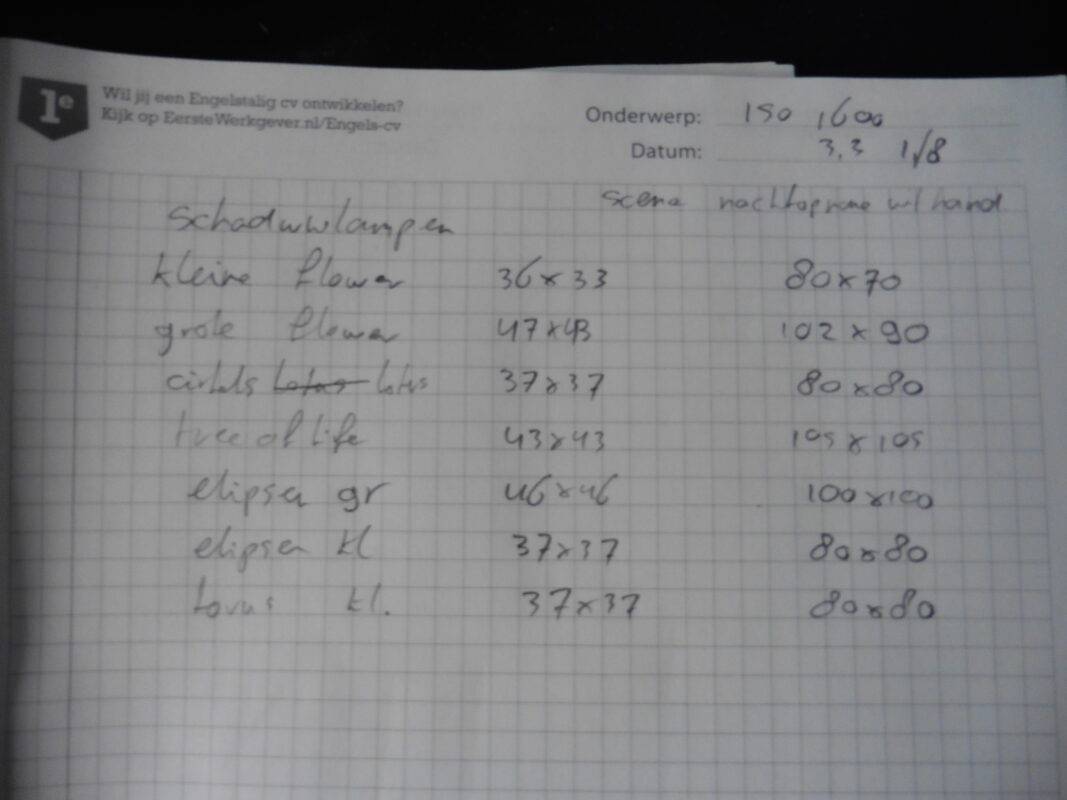 1e
Wil jij een Engelstalig cv ontwikkelen?
Kijk op EersteWerkgever.nl/Engels-cv
Onderwerp: ISO 1600
Datum: 3,3 1/8
scene nachtopname w/ hand
Schaduwlampen
kleine flower 36x33 80x70
grote flower 47x43 102x90
cirkels lotus lotus 37x37 80x80
tree of life 43x43 105x105
elipsen gr 46x46 100x100
elipsen kl 37x37 80x80
kl. 37x37 80x80